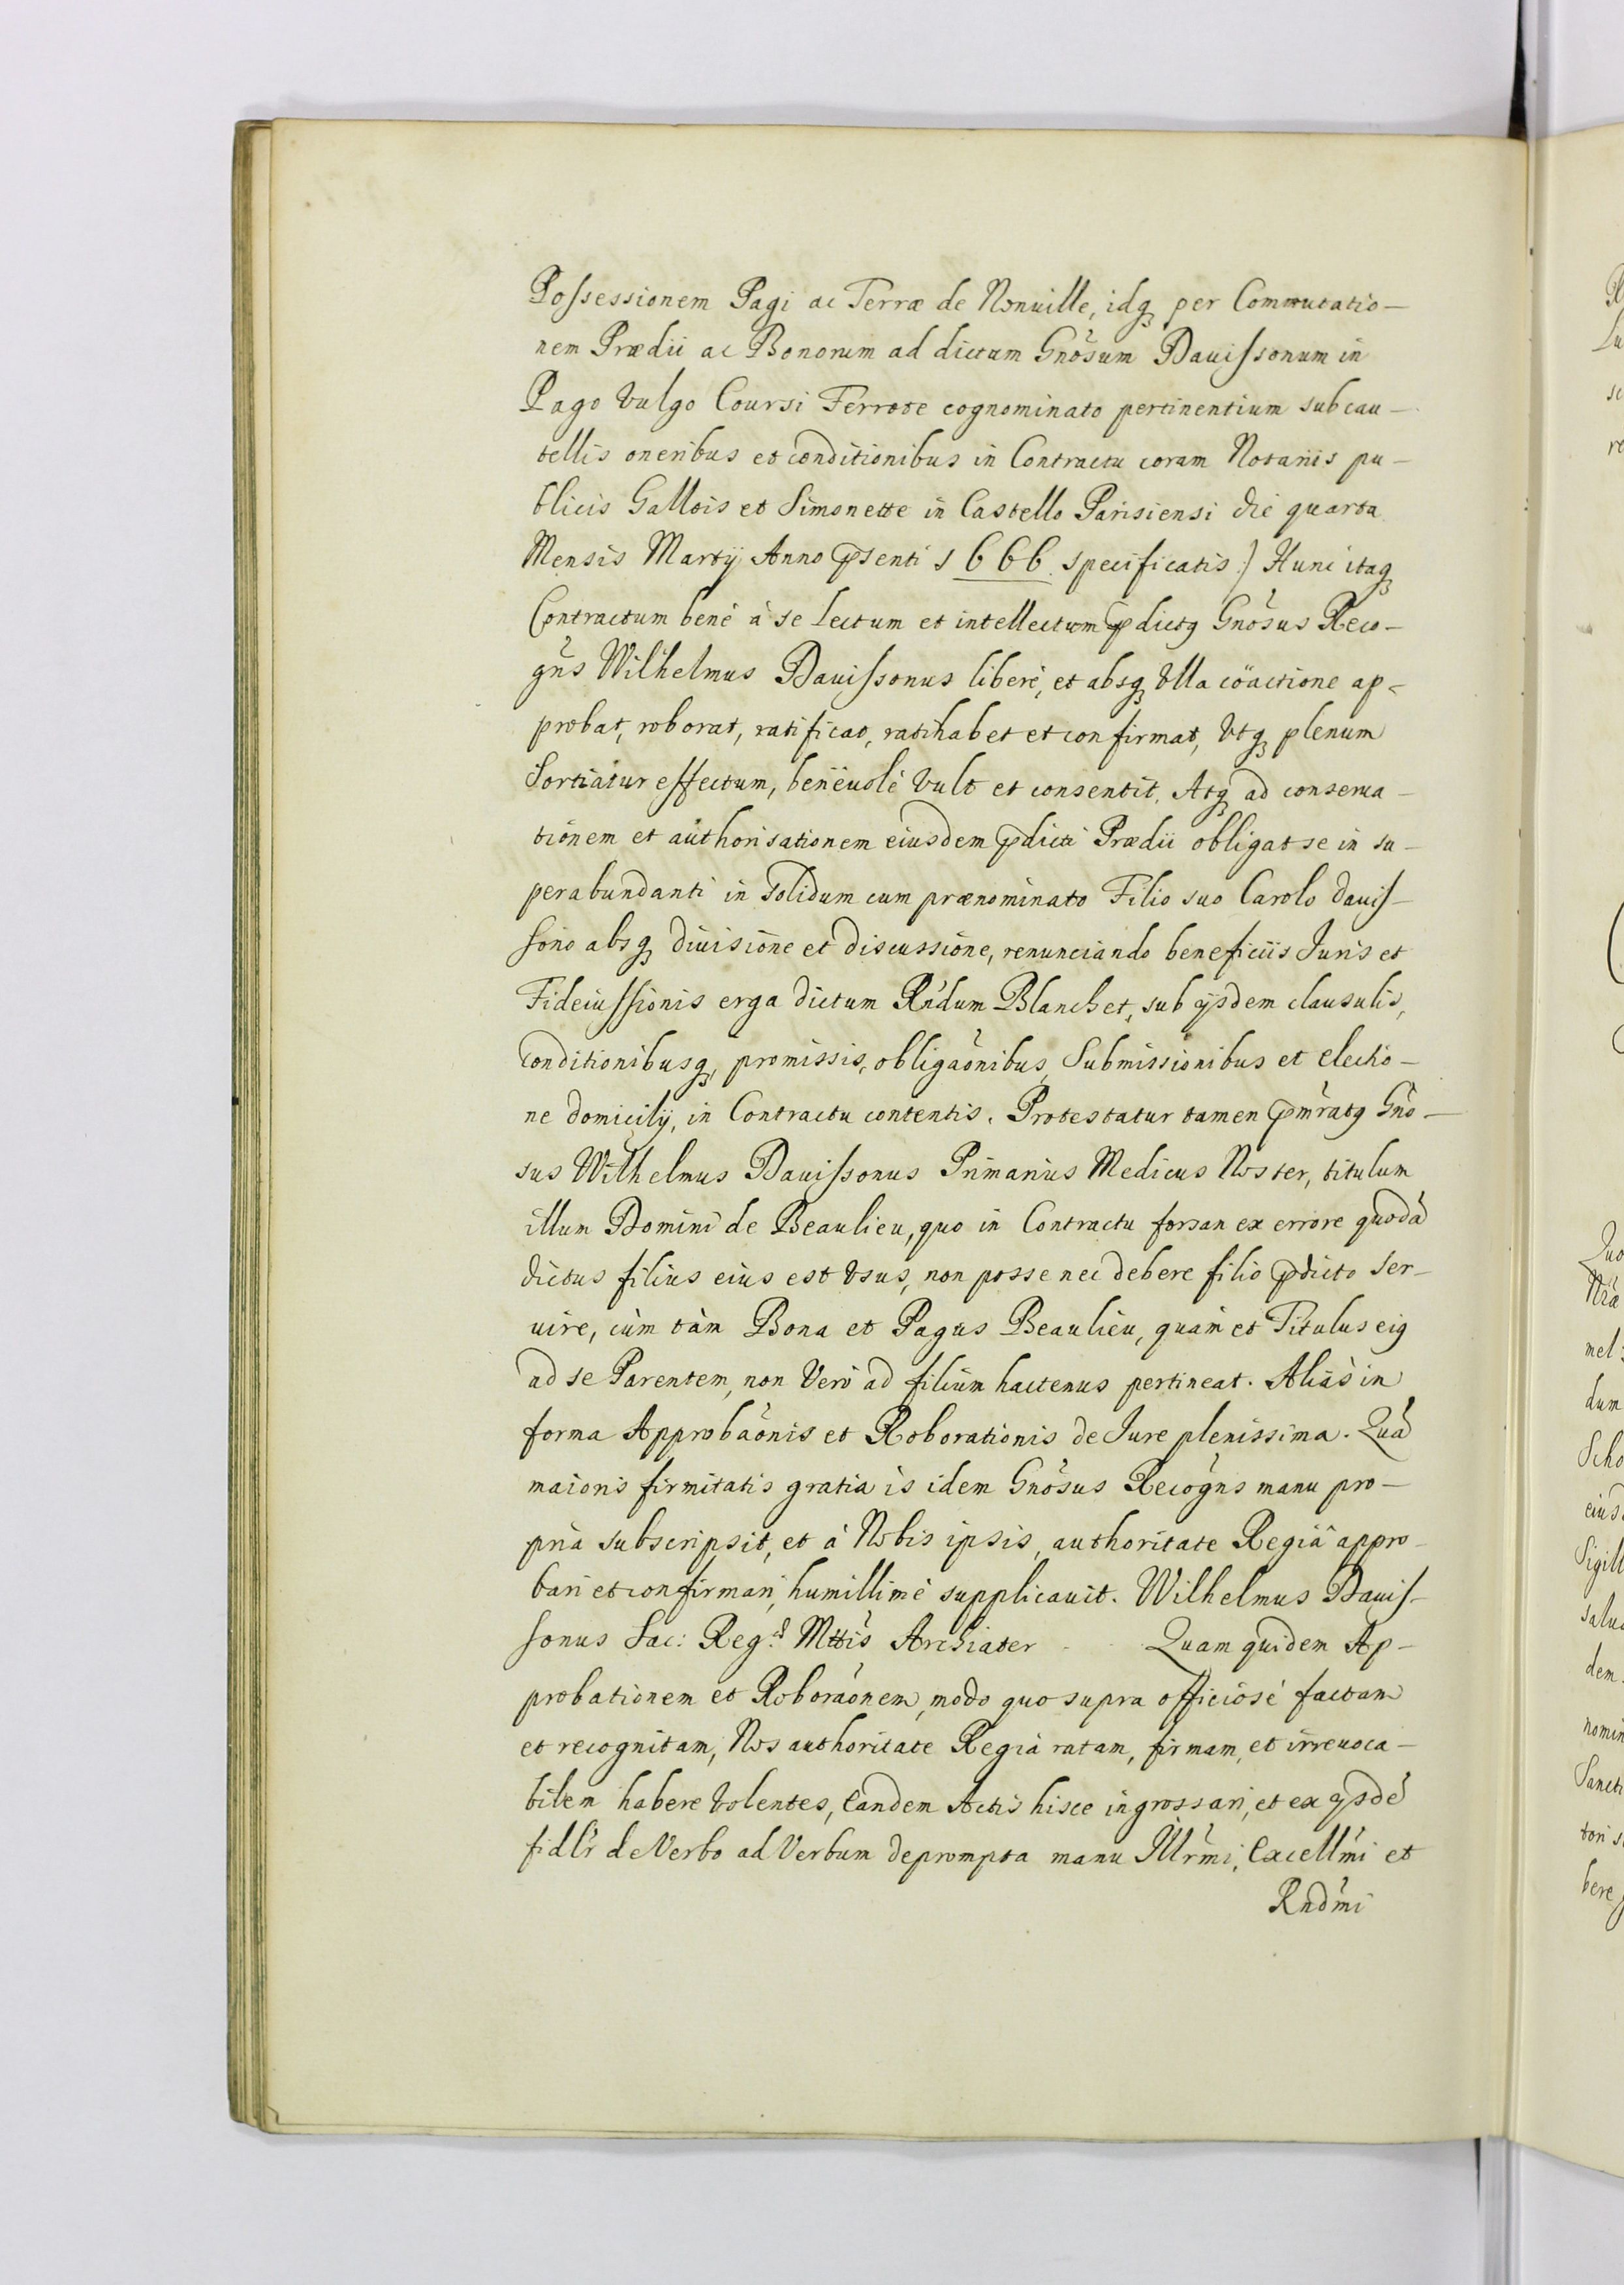 Possessionem Pagi ac Terræ de Nonuille, idq₃ per Commutatio-
nem Prædii ac Bonorum ad dictum Gnosum Dauissonum in
Pago vulgo Coursi Ferrote cognominato pertinentium sub cau-
tellis oneribus et conditionibus in Contractu coram Notariis pu-
blicis Gallois et Simonette in Castello Parisiensi die quarta
Mensis Martij Anno pśenti 1666 specificatis.) Hunc itaq₃
Contractum benè à se lectum et intellectum p̄dictꝯ Gnosus Reco-
gns Wilhelmus Dauissonus liberè, et absq₃ Vlla coäctione ap-
probat, roborat, ratificat, ratihabet et confirmat, Vtq₃ plenum
Sortiatur effectum, beneuolè vult et consentit. Atq₃ ad conserua-
tionem et authorisationem eiusdem p̄dicti Prædii obligat se in su-
perabundanti in solidum cum prænominato Filio suo Carolo Dauis-
sono absq₃ diuisione et discussione, renunciando beneficiis Iuris et
Fideiussionis erga dictum Rndum Blanchet, sub ijsdem clausulis,
conditionibusq₃, promissis, obligaonibus, Submissionibus et electio-
ne domicilij, in Contractu contentis. Protestatur tamen p̄mratꝯ Gno-
sus Wilhelmus Dauissonus Primarius Medicus Noster, titulum
illum Domini de Beaulieu, quo in Contractu forsan ex errore quodā
dictus filius eius est Vsus, non posse nec debere filio p̄dicto ser-
uire, cùm tàm Bona et Pagus Beaulieu, quàm et Titulus eiꝯ
ad se Parentem, non Verò ad filium hactenus pertineat. Aliàs in
forma Approbaonis et Roborationis de Iure plenissima. Quā
maioris firmitatis gratia is idem Gnosus Recogns manu pro-
pria subscripsit, et à Nobis ipsis, authoritate Regiâ appro-
bari et confirmari, humillimè supplicauit. Wilhelmus Dauis-
sonus Sac: Reg: Mttis Archiater Quam quidem Ap-
probationem et Roboraonem, modo quo supra officiosè factam
et recognitam, Nos authoritate Regia ratam, firmam, et irreuoca-
bilem habere Volentes, Eandem Actis hisce ingrossari, et ex ijsdē
fidlr de Verbo ad Verbum deprompta manu Illrmi, Excellmi et
Rndmi